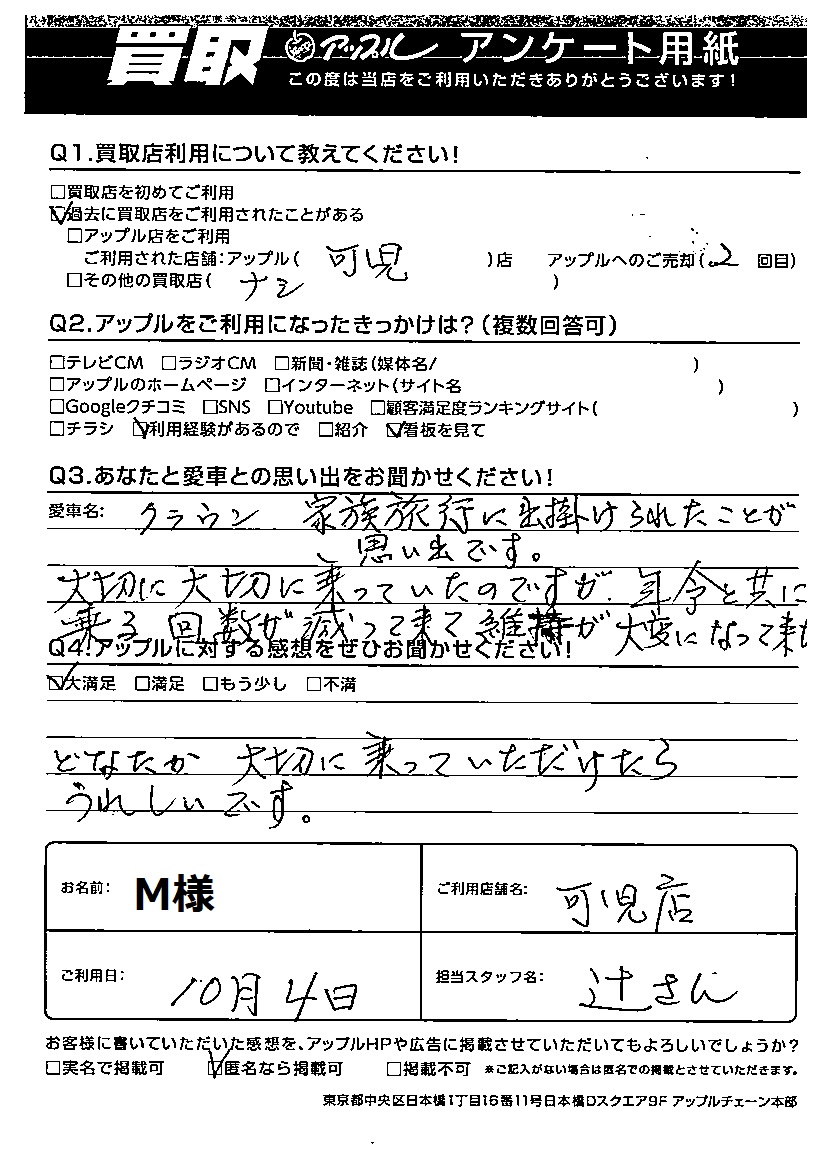 買取 アップル アンケート用紙
この度は当店をご利用いただきありがとうございます!
Q1.買取店利用について教えてください!
□買取店を初めてご利用
☑過去に買取店をご利用されたことがある
□アップル店をご利用
ご利用された店舗:アップル( 可児 )店 アップルへのご売却( 2 回目)
□その他の買取店( ナシ )
Q2.アップルをご利用になったきっかけは?(複数回答可)
□テレビCM □ラジオCM □新聞・雑誌(媒体名/ )
□アップルのホームページ □インターネット(サイト名 )
□Googleクチコミ □SNS □Youtube □顧客満足度ランキングサイト( )
□チラシ ☑利用経験があるので □紹介 ☑看板を見て
Q3.あなたと愛車との思い出をお聞かせください!
愛車名: クラウン 家族旅行に出掛けられたことが
思い出です。
大切に大切に乗っていたのですが、年令と共に
乗る回数が減って来て維持が大変になって来た
Q4.アップルに対する感想をぜひお聞かせください!
☑大満足 □満足 □もう少し □不満
どなたか 大切に乗っていただけたら
うれしいです。
お名前: M様 ご利用店舗名: 可児店
ご利用日: 10月4日 担当スタッフ名: 辻さん
お客様に書いていただいた感想を、アップルHPや広告に掲載させていただいてもよろしいでしょうか?
□実名で掲載可 ☑匿名なら掲載可 □掲載不可 ※ご記入がない場合は匿名での掲載とさせていただきます。
東京都中央区日本橋1丁目16番11号日本橋Dスクエア9F アップルチェーン本部